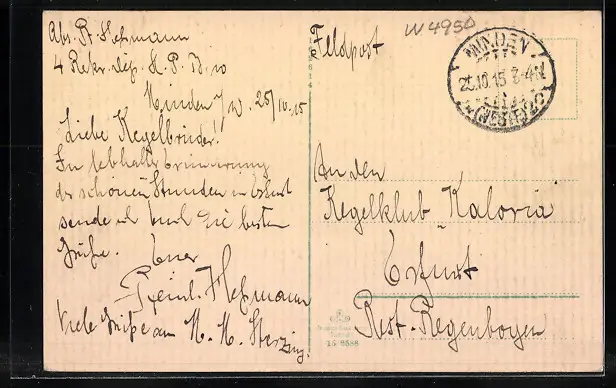 Abs. Pt. Hehmann
4 Rekr. Dep. H. P. B. 10
Minden i/W. 25/10.15
Liebe Kegelbrüder!!
In lebhafter Erinnerung
der schönen Stunden in Erfurt
sende ich Euch die besten
Grüße. Euer
Reinh. Hehmann
Viele Grüße an M. M. Sterzing.
Feldpost
W 4950
MINDEN
25.10.15 3-4N
(WESTF)
An den
Kegelklub "Kaloria"
Erfurt
Rest. Regenbogen
15 6588